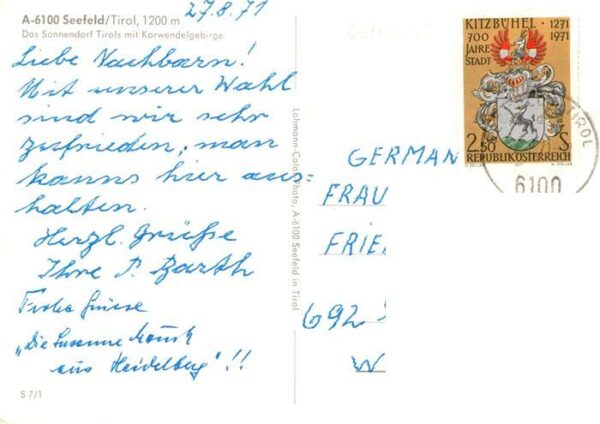 A-6100 Seefeld/Tirol, 1200 m
Das Sonnendorf Tirols mit Karwendelgebirge
27.8.71
Liebe Nachbarn!
Mit unserer Wahl
sind wir sehr
zufrieden, man
kanns hier aus=
halten.
Herzl. Grüße
Ihre P. Barth
Frohe Grüsse
"Die Susanne
aus Heidelberg"!!
S 7/1
Lohmann-Color-Photo, A-6100 Seefeld in Tirol
KITZBÜHEL · 1271
700 1971
JAHRE
STADT
2.50 S
REPUBLIK ÖSTERREICH
TIROL
6100
GERMAN
FRAU
FRIE
692
W